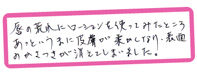 唇の荒れにローションを使ってみたところ
あっというまに皮膚が柔かくなり、表面
のかさつきが消えてしまいました!